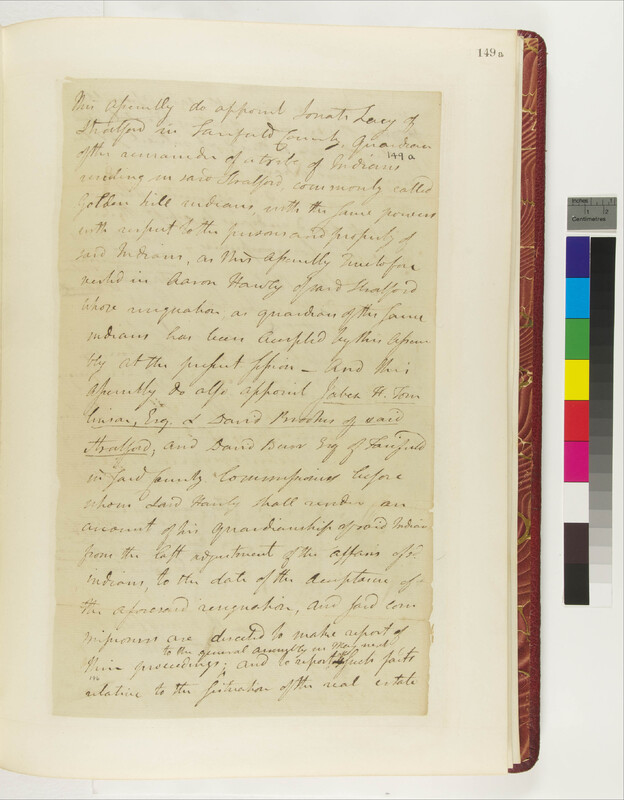 149a
This Assembly do appoint Jonath Lacy of
Stratford in Fairfield County Guardian
of the remainder of a tribe of Indians
149a
residing in said Stratford, commonly called
Golden hill indians with the same powers
with respect to the persons and property of
said Indians, as this Assembly heretofore
vested in Aaron Hawly of said Stratford
whose resignation as guardian of the same
indians has been accepted by this Assem
bly at the present session – And this
Assembly do also appoint Jabez H. Tom
linson, Esq. & David Brooks of said
Stratford, and David Burr Esq of Fairfield
in said County Commissioners before
whom said Hawly shall render an
account of his guardianship of said Indians
from the last adjustment of the affairs of sd
indians, to the date of the acceptance of
the aforesaid resignation, and said com
missioners are directed to make report of
to the general assembly in May next
their proceedings; and to report such facts
relative to the situation of the real estate
Inches
Centimetres